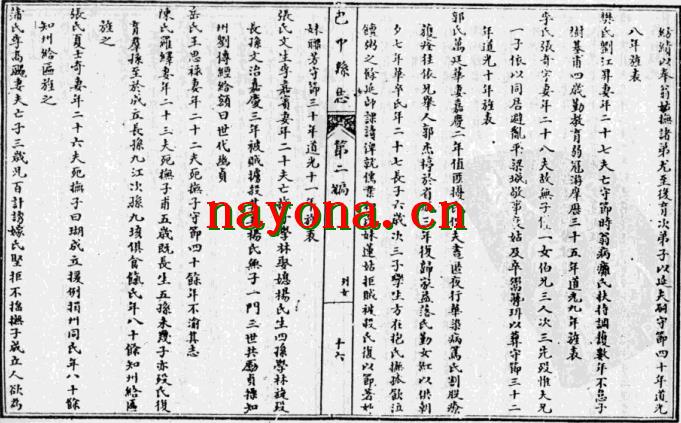 紡績以奉翁姑撫諸弟尤至後育次弟子以延夫嗣守節四十年道光
八年旌表
樊氏劉江昇妻年二十七夫亡守節時翁病癱氏扶持調護數年不怠子
澍墓甫四歲勤教育弱冠游庠歷三十五年道光九年旌表
李氏張奇字妻年二十八夫故無子一女伯兄三人次三先歿惟夫兄
一子依以同居避亂平梁城敬事姑及卒鬻以葬守節三十二
年道光十年旌表
郭氏萬廷華妻嘉慶二年值匪擾氏偕夫晝匿夜行華染病篤氏割股療
旋痊往依兄舉人郭杰於省三年復歸家益落氏勤女紅以供朝
夕七年華卒氏年二十七長子六歲次三子孿生方在抱氏撫孤歡泣
饘粥之餘延師課讀俾就儒業妹蓮姑拒賊被殺氏復以節著如
妹聯芳守節三十年道光十一年旌表
己中縣志
第二編
列女
十六
張氏文生李嘉賓妻年二十夫亡學林娶媳楊氏生四孫學林旋歿
長孫文治嘉慶三年被賊擄投楊氏無子一門三世共勵貞操知
州劉傳經給額曰世代幽貞
岳氏王思祿妻年二十二夫死撫子守節四十餘年不渝其志
陳氏羅緯妻年二十三夫死撫子甫五歲既長生五孫未幾子亦歿氏復
育羣孫至於成立長孫九江次孫九垓俱食餼氏年八十餘知州給區
旌之
張氏貢士奇妻年二十六夫死撫子曰瑚成立援例捐州同氏年八十餘
知州給區旌之
蒲氏李高鳳妻夫亡子三歲兄百計誘嫁氏堅拒不撫子成立人欲為
nayona.cn